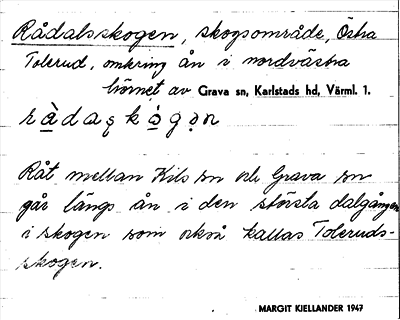 Rådalsskogen, skogsområde, Östra
Tolerud, omkring ån i nordvästra
hörnet av Grava sn, Karlstads hd, Värml. l.
ràdaʂkógọn
Råt mellan Kils sn och Grava sn
går längs ån i den största dalgången
i skogen som också kallas Toleruds-
skogen.
MARGIT KIELLANDER 1947